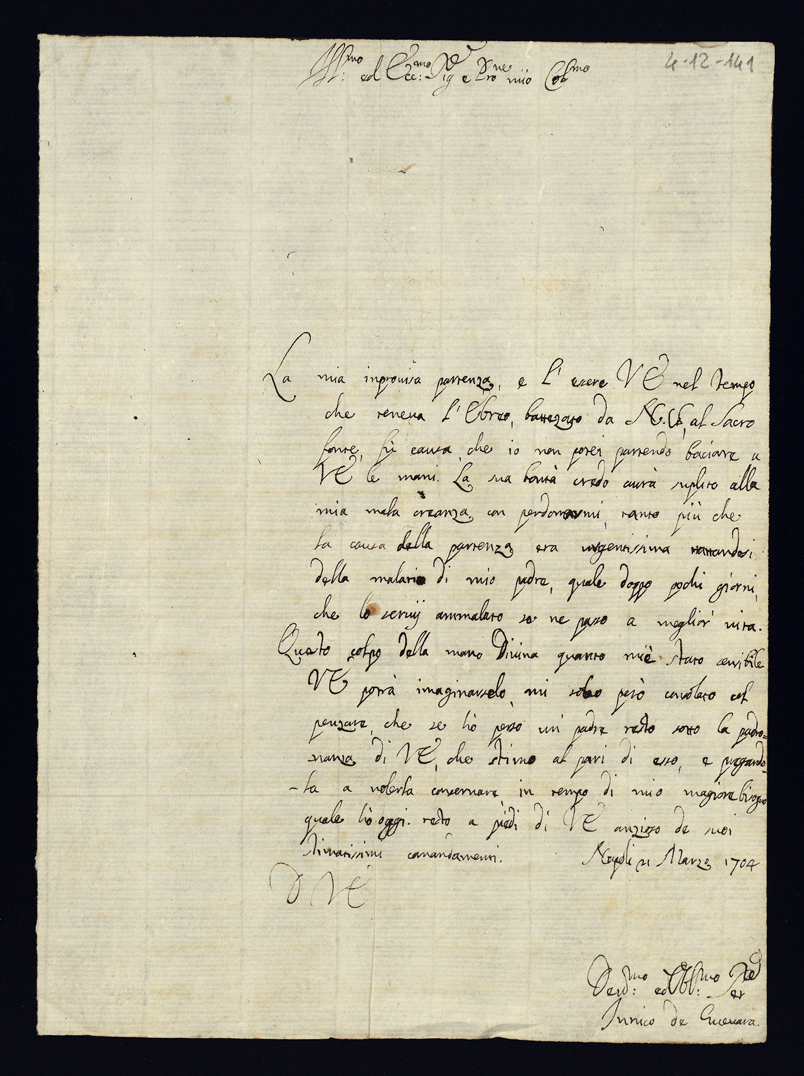 Ill.mo ed Ecc.mo Sig.e e P.rone mio Col.mo
4-12-141
La mia inprovisa partenza, e l'esere VE nel tempo
che teneva l'Ebreo, battezato da al Sacro
fonte, fù causa, che io non potei partendo baciare a
VE le mani. La sua bontà credo avrà suplito alla
mia mala creanza con perdonarmi, tanto più che
la causa della partenza era urgentissima trattandosi
della malatia di mio padre, quale doppo pochi giorni,
che lo servij ammalato se ne passo a meglior' vita.
Questo colpo della mano Divina quanto mi è stato sensibile
VE potrà imaginarselo, mi solo però consolato col
penzare, che se hò perso un padre resto sotto la padro=
nanza di VE, che stimo al pari di esso, e pregando=
-la a volerla conservare in tempo di mio magiore bisogno
quale hò oggi. resto a piedi di VE anzioso de suoi
stimatissimi comandamenti. Napoli 21 Marzo 1704
D VE
Dev.mo ed Obl.mo Ser
Innico de Guevara.